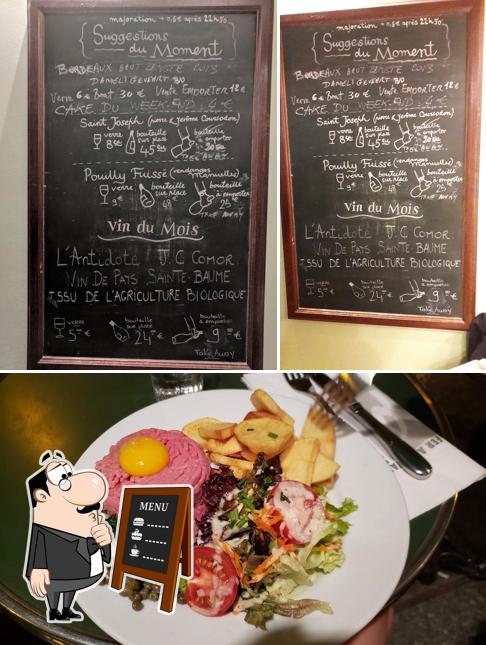 majoration + 0,5€ après 22h30
Suggestions
du Moment
BORDEAUX BRUT ZERSTE 2013
Verre 6€ Bout 30 € Vente EMPORTER 12€
CAKE DU WEEK-END 4 €
Saint Joseph (pierre & jérôme Coursodon)
verre
bouteille
sur place
bouteille
à emporter
8€
45
30
Pouilly Fuissé (vendanges
manuelles)
verre
bouteille
sur place
bouteille
à emporter
9€
48
25
TAKE AWAY
Vin du Mois
L'Antidoté J.C COMOR
VIN DE PAYS SAINTE-BAUME
ISSU DE L'AGRICULTURE BIOLOGIQUE
verre
bouteille
sur place
bouteille
à emporter
5 €
24 €
9 €
Take Away
majoration + 0,5€ après 22h30
Suggestions
du Moment
BORDEAUX BRUT ZERSTE 2013
Verre 6€ Bout 30 € Vente EMPORTER 12€
CAKE DU WEEK-END 4 €
Saint Joseph (pierre & jérôme Coursodon)
verre
bouteille
sur place
bouteille
à emporter
8€
45
30
Pouilly Fuissé (vendanges
manuelles)
verre
bouteille
sur place
bouteille
à emporter
9€
48
25
TAKE AWAY
Vin du Mois
L'Antidoté J.C COMOR
VIN DE PAYS SAINTE-BAUME
ISSU DE L'AGRICULTURE BIOLOGIQUE
verre
bouteille
sur place
bouteille
à emporter
5 €
24 €
9 €
Take Away
MENU